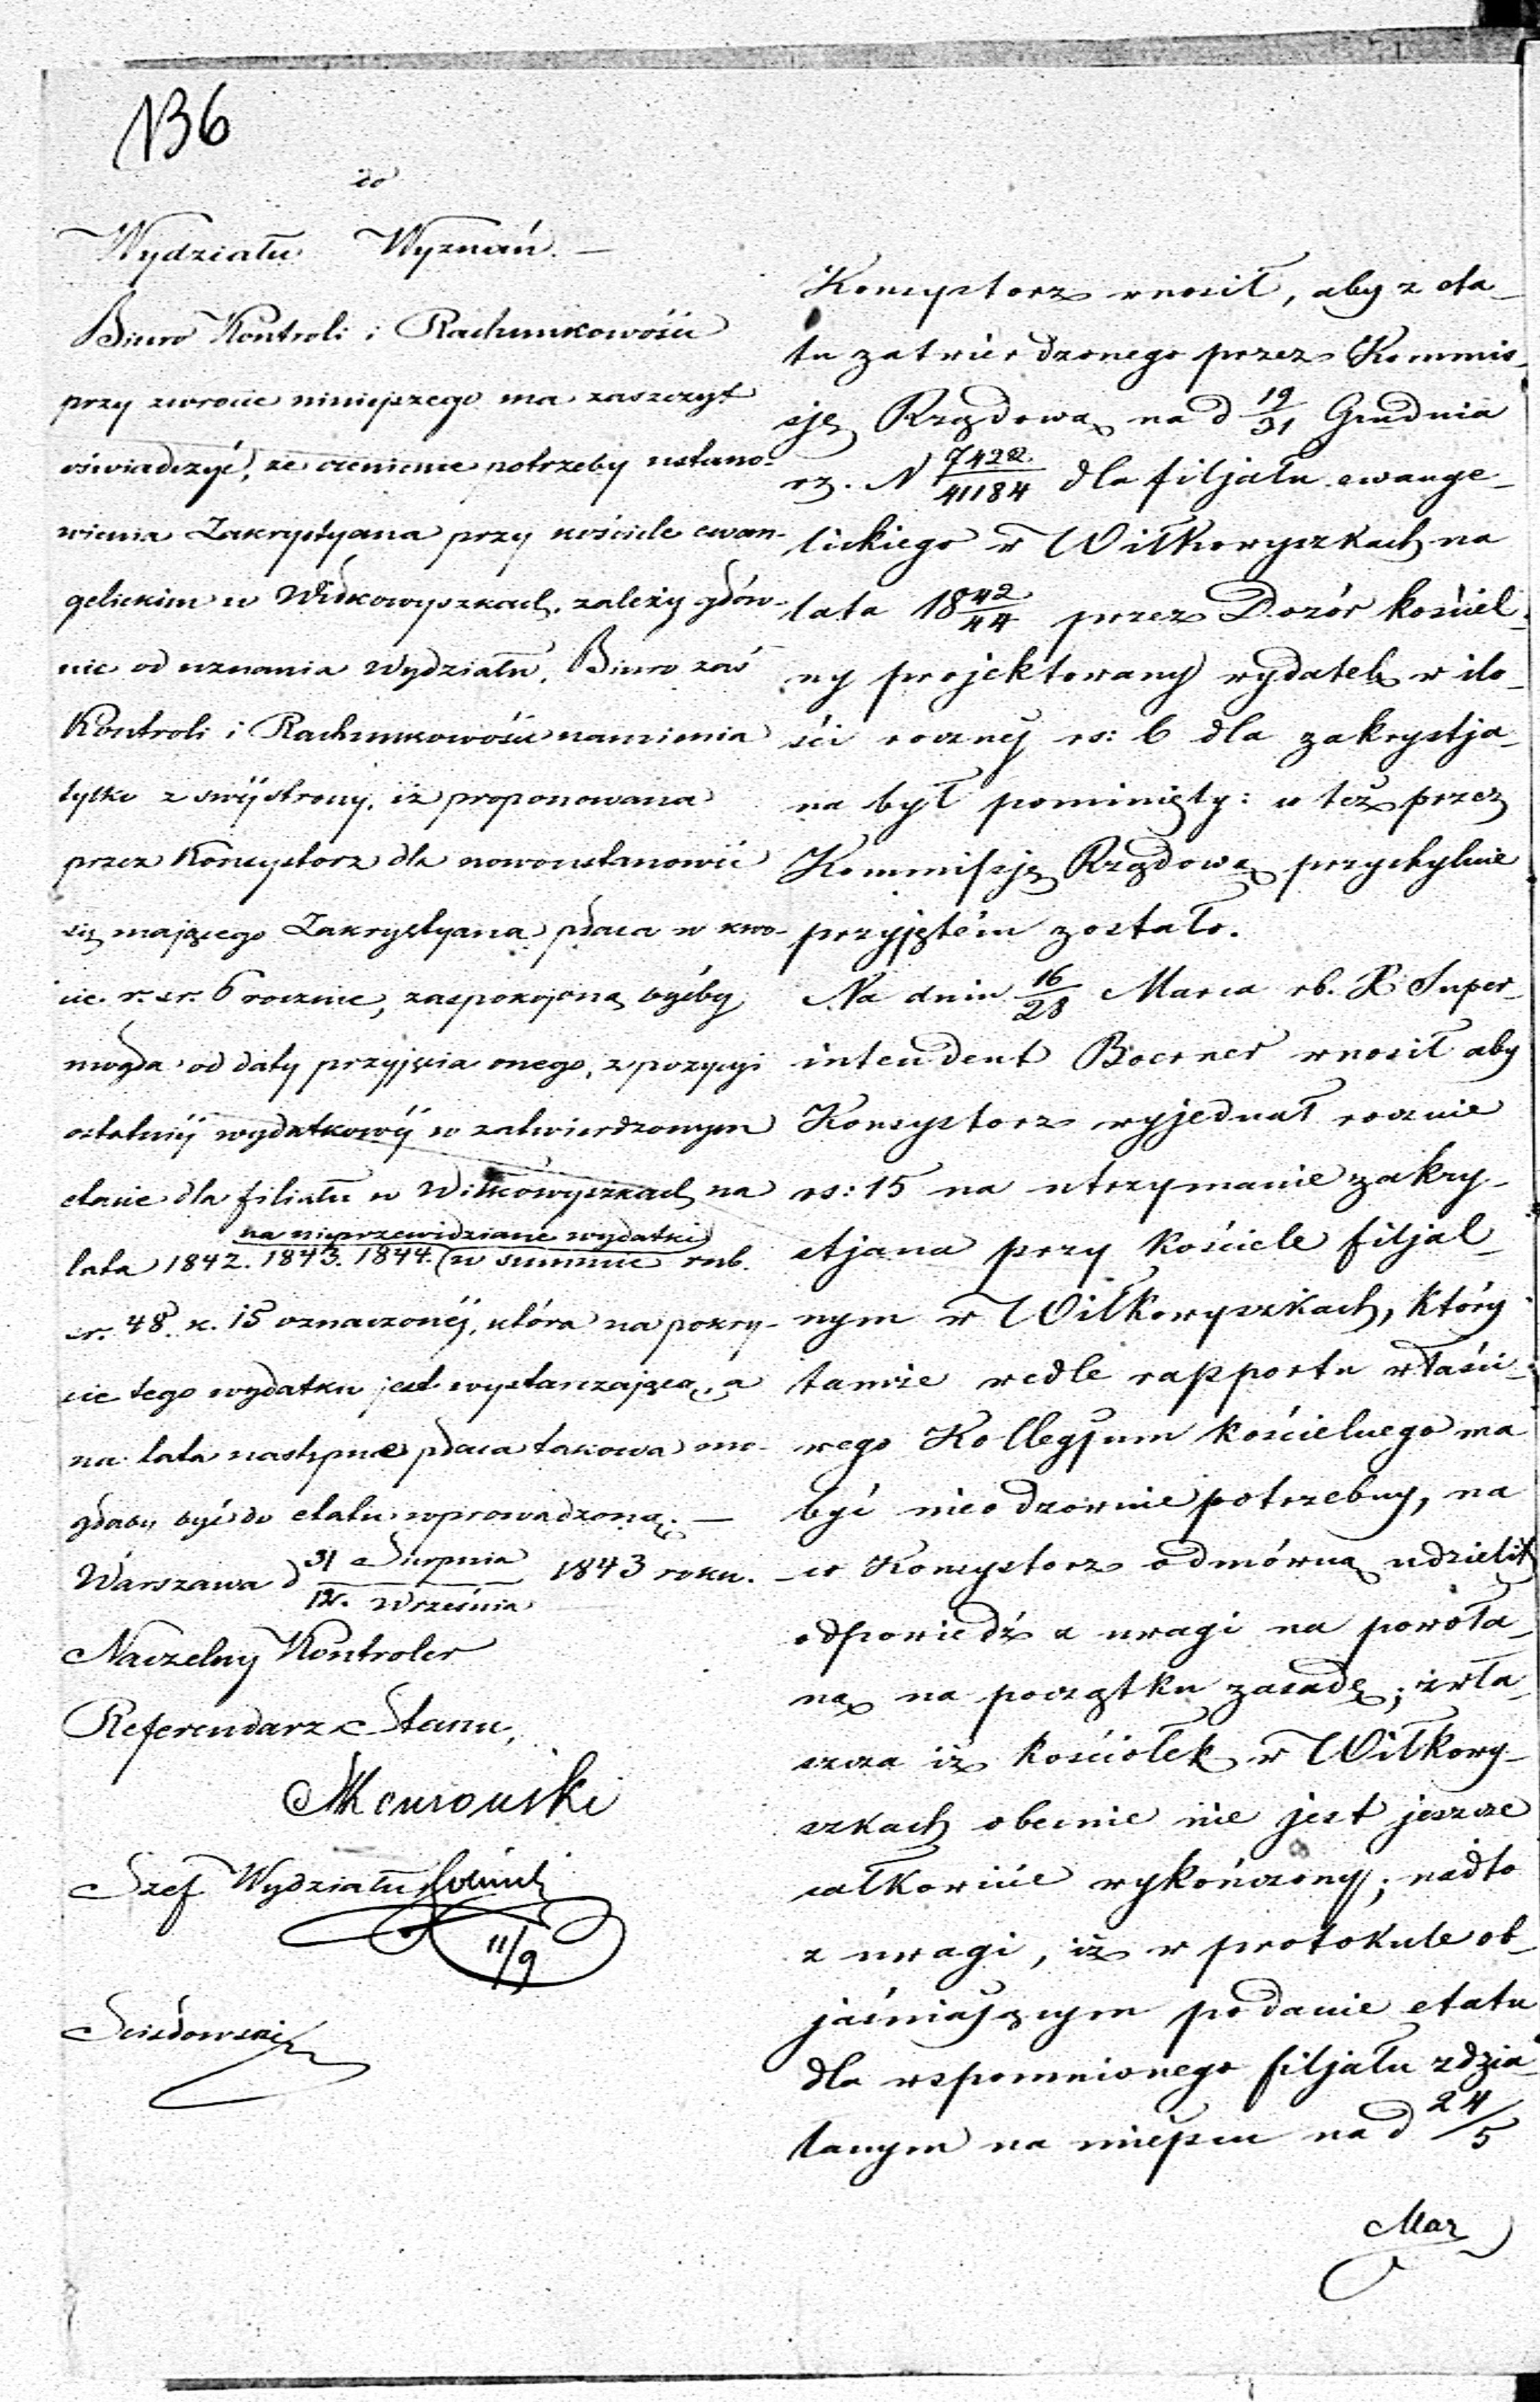 136
do
Wydziału Wyznań. —
Biuro Kontroli i Rachunkowości
przy zwrocie niniejszego ma zaszczyt
oświadczyć, że ocenienie potrzeby ustano-
wienia Zakrystyana przy kościele ewan-
gelickim w Wiłkowyszkach, zależy głów-
nie od uznania Wydziału, Biuro zaś
Kontroli i Rachunkowości namienia
tylko z swéj strony, iż proponowana
przez Konsystorz dla nowoustanowić
się mającego Zakrystyana płaca w kwo-
cie r. sr. 6 rocznie, zaspokojoną byćby
mogła od daty przyjęcia onego, z pozycyi
ostatniéj wydatkowéj w zatwierdzonym
etacie dla filiału w Wiłkowyszkach na
na nieprzewidziane wydatki
lata 1842. 1843. 1844. (w summie rub.
sr. 48. k. 15 oznaczonéj, która na pokry-
cie tego wydatku jest wystarczającą, a
na lata następne płaca takowa mo-
głaby być do etatu wprowadzoną. —
Warszawa d 31 Sierpnia / 12. Września 1843 roku.
Naczelny Kontroler
Referendarz Stanu,
Szef Wydziału
11/9
Konsystorz wnosił, aby z eta-
tu zatwierdzonego przez Kommis-
sję Rządową na d 19/31 Grudnia
rz. N 7422/41184 dla filjału ewange-
lickiego w Wiłkowyszkach na
lata 18 42/44 przez Dozór kościel-
ny projektowany wydatek w ilo-
ści rocznej rs: 6 dla zakrystja-
na był pominięty: co też przez
Kommissję Rządową przychylnie
przyjętém zostało.
Na dniu 16/28 Marca rb. X Super-
intendent Boerner wnosił aby
Konsystorz wyjednał rocznie
rs: 15 na utrzymanie zakry-
stjana przy kościele filjal-
nym w Wiłkowyszkach, który
tamże wedle rapportu właści-
wego Kollegjum kościelnego ma
być nieodzownie potrzebny, na
co Konsystorz odmówną udzielił
odpowiedź z uwagi na powoła-
ną na początku zasadę; zwła-
szcza iż kościołek w Wiłkowy-
szkach obecnie nie jest jeszcze
całkowicie wykończony; nadto
z uwagi, iż w protokule ob-
jaśniającym podanie etatu
dla wspomnionego filjału zdzia-
łanym na miejscu na d 24/5
Mar